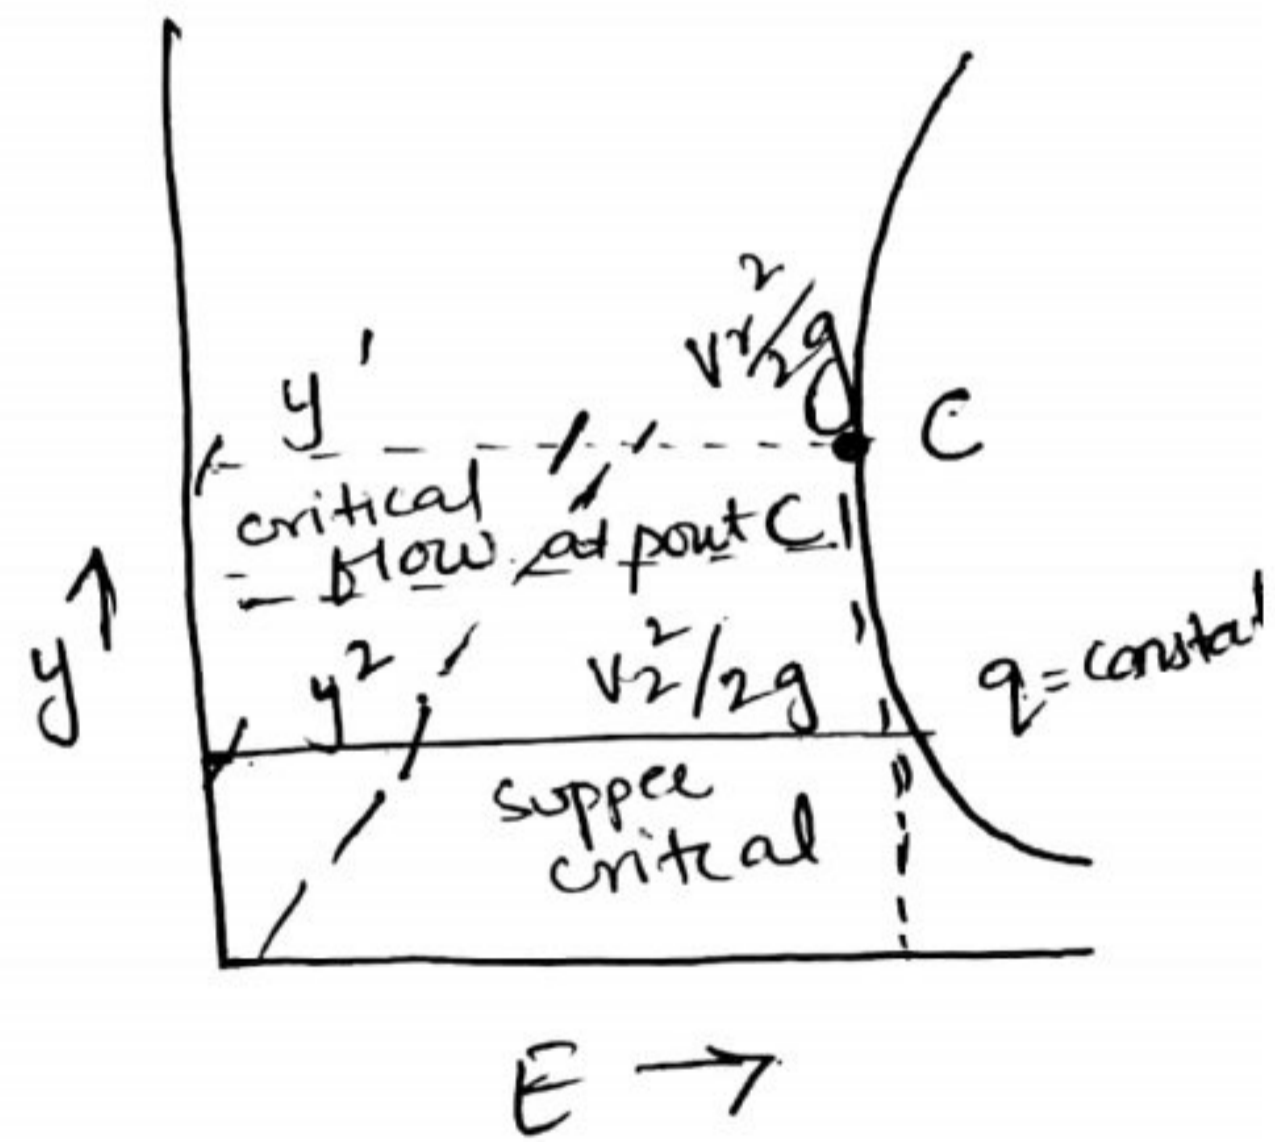 v²/2g
y'
C
critical
flow at pout C
y ↑
y²
v₂²/2g
q = consta
suppee
critcal
E →